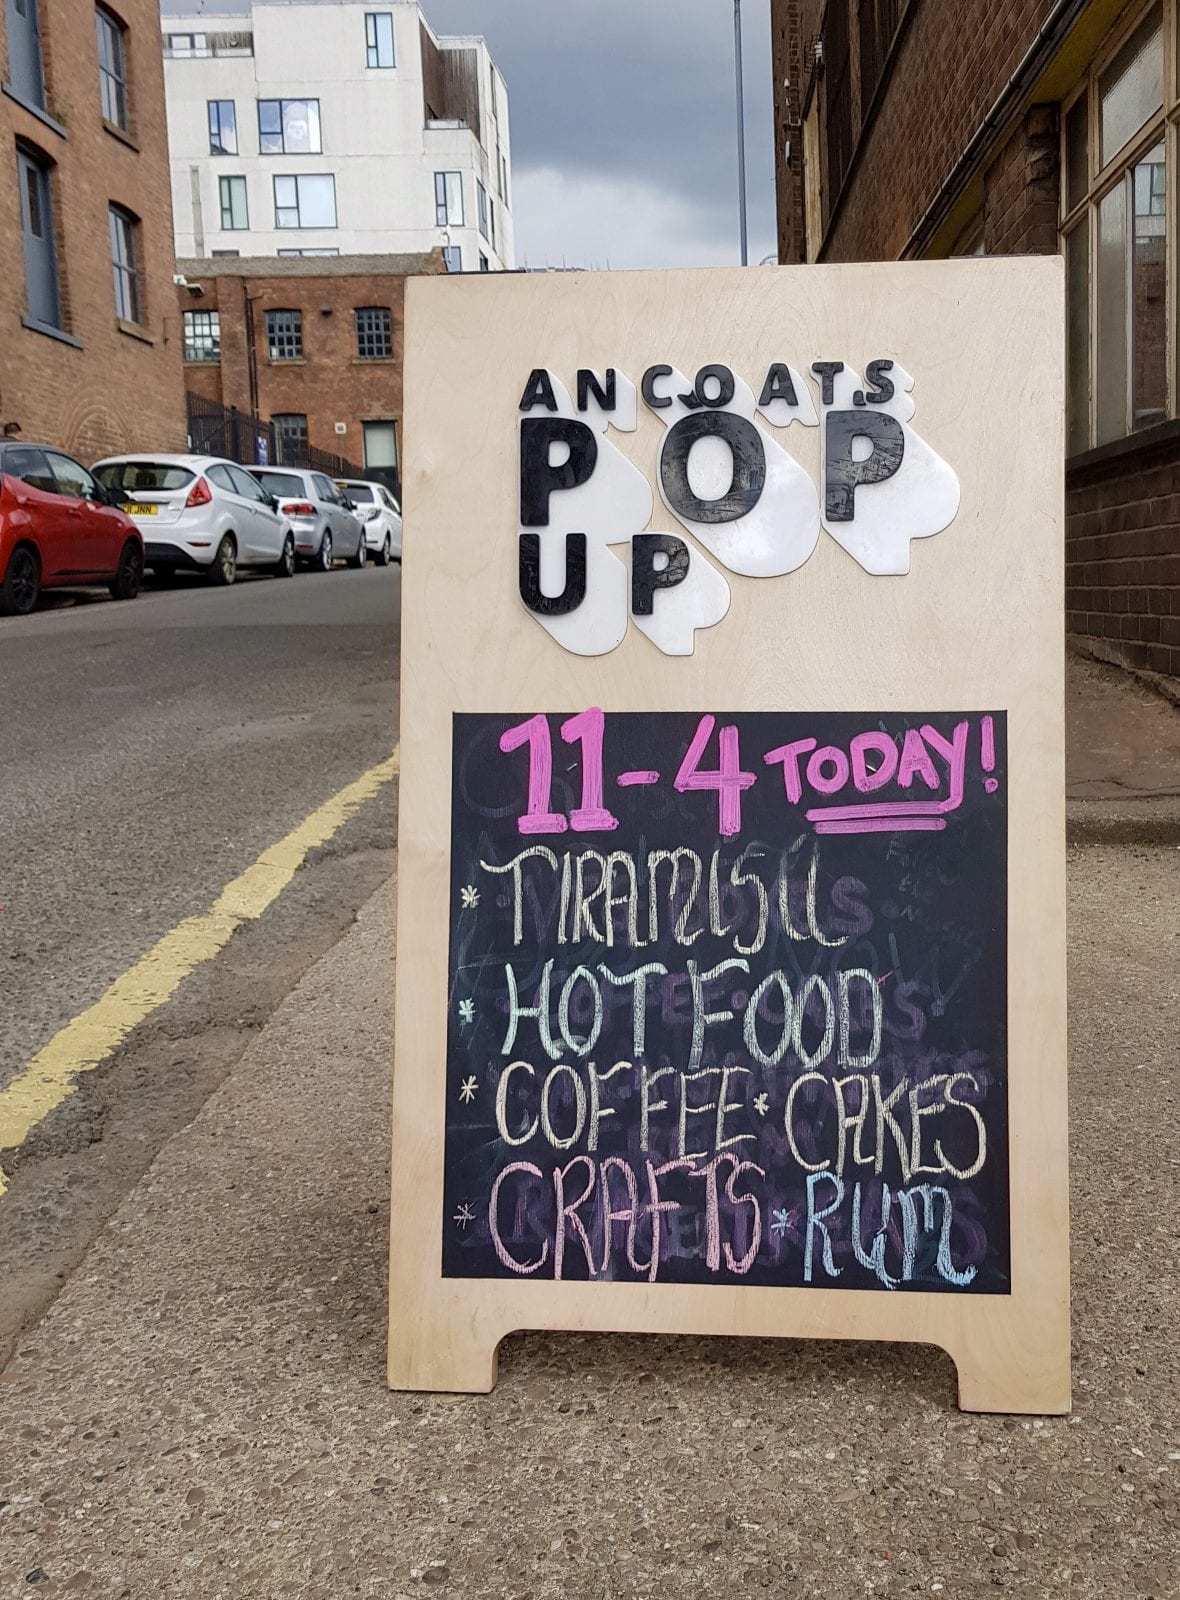 ANCOATS
POP
UP
11-4 TODAY!
* TIRAMISU
* HOT FOOD
* COFFEE * CAKES
* CRAFTS * RUM